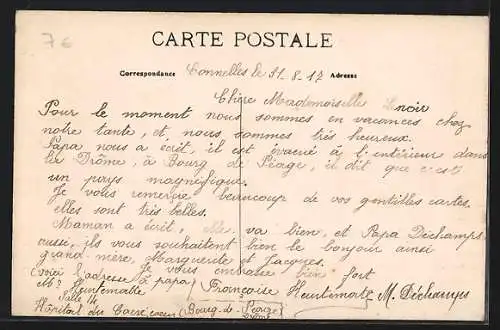 76
CARTE POSTALE
Correspondance Connelles le 31-8-17 Adresse
Chère Mademoiselle Lenoir
Pour le moment nous sommes en vacances chez
notre tante, et nous sommes très heureux.
Papa nous a écrit, il est évacué à l'intérieur dans
la Drôme, à Bourg de Péage, il dit que c'est
un pays magnifique.
Je vous remercie beaucoup de vos gentilles cartes.
elles sont très belles.
Maman a écrit, elle va bien, et Papa Déchamps
aussi, ils vous souhaitent bien le bonjour ainsi
grand-mère, Marguerite et Jacques.
Je vous embrasse bien fort
(voici l'adresse à papa) Françoise Heurtematte M. Déchamps
Mr Heurtematte
Salle 14
Hôpital du Sacré coeur (Bourg-de-Péage
Drôme)